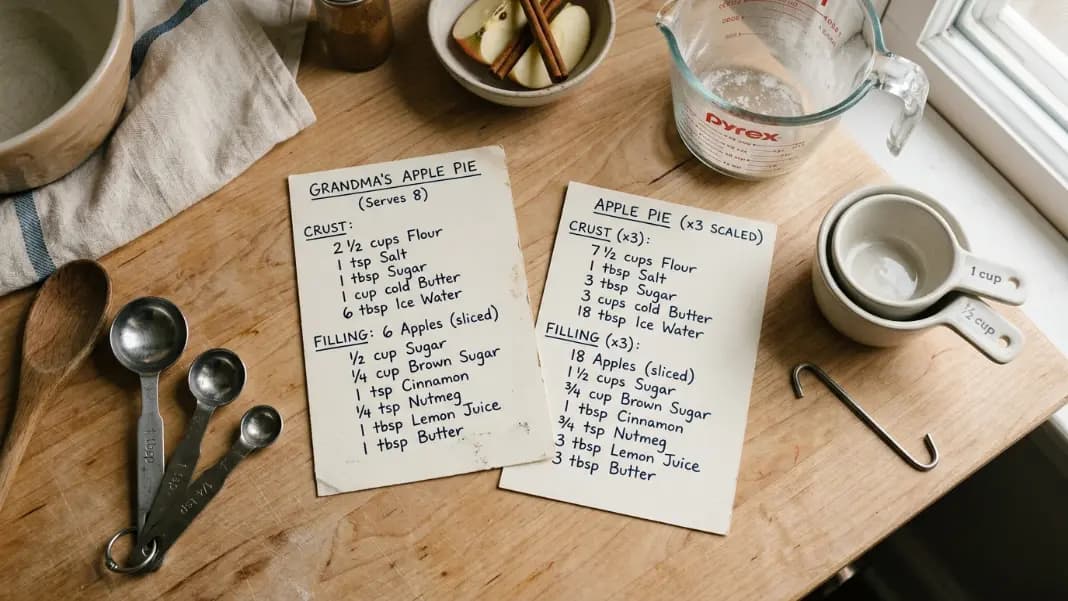 GRANDMA'S APPLE PIE
(Serves 8)
CRUST:
2 ½ cups Flour
1 tsp Salt
1 tbsp Sugar
1 cup cold Butter
6 tbsp Ice Water
FILLING: 6 Apples (sliced)
½ cup Sugar
¼ cup Brown Sugar
1 tsp Cinnamon
¼ tsp Nutmeg
1 tbsp Lemon Juice
1 tbsp Butter
APPLE PIE (x3 SCALED)
CRUST (x3):
7 ½ cups Flour
1 tbsp Salt
3 tbsp Sugar
3 cups cold Butter
18 tbsp Ice Water
FILLING (x3):
18 Apples (sliced)
1 ½ cups Sugar
¾ cup Brown Sugar
1 tbsp Cinnamon
¾ tsp Nutmeg
3 tbsp Lemon Juice
3 tbsp Butter
pyrex
1 cup
½ cup
1 tbsp
1 tsp
1/4 tsp